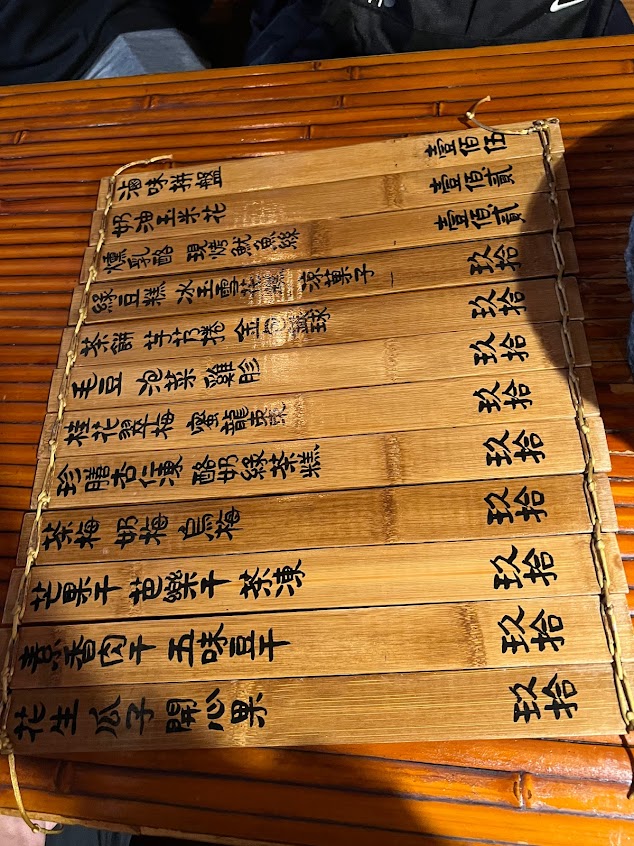 滷味拼盤 壹佰伍
奶油玉米花 壹佰貳
燻乳酪 現烤魷魚絲 壹佰貳
綠豆糕 冰玉雪花糕 涼菓子 玖拾
茶餅 芋艿捲 金 球 玖拾
毛豆 泡菜 雞胗 玖拾
桂花翠梅 蜜龍棗 玖拾
珍膳杏仁凍 酪奶綠茶糕 玖拾
茶梅 奶梅 烏梅 玖拾
芒果干 芭樂干 茶凍 玖拾
素香肉干 五味豆干 玖拾
花生 瓜子 開心果 玖拾